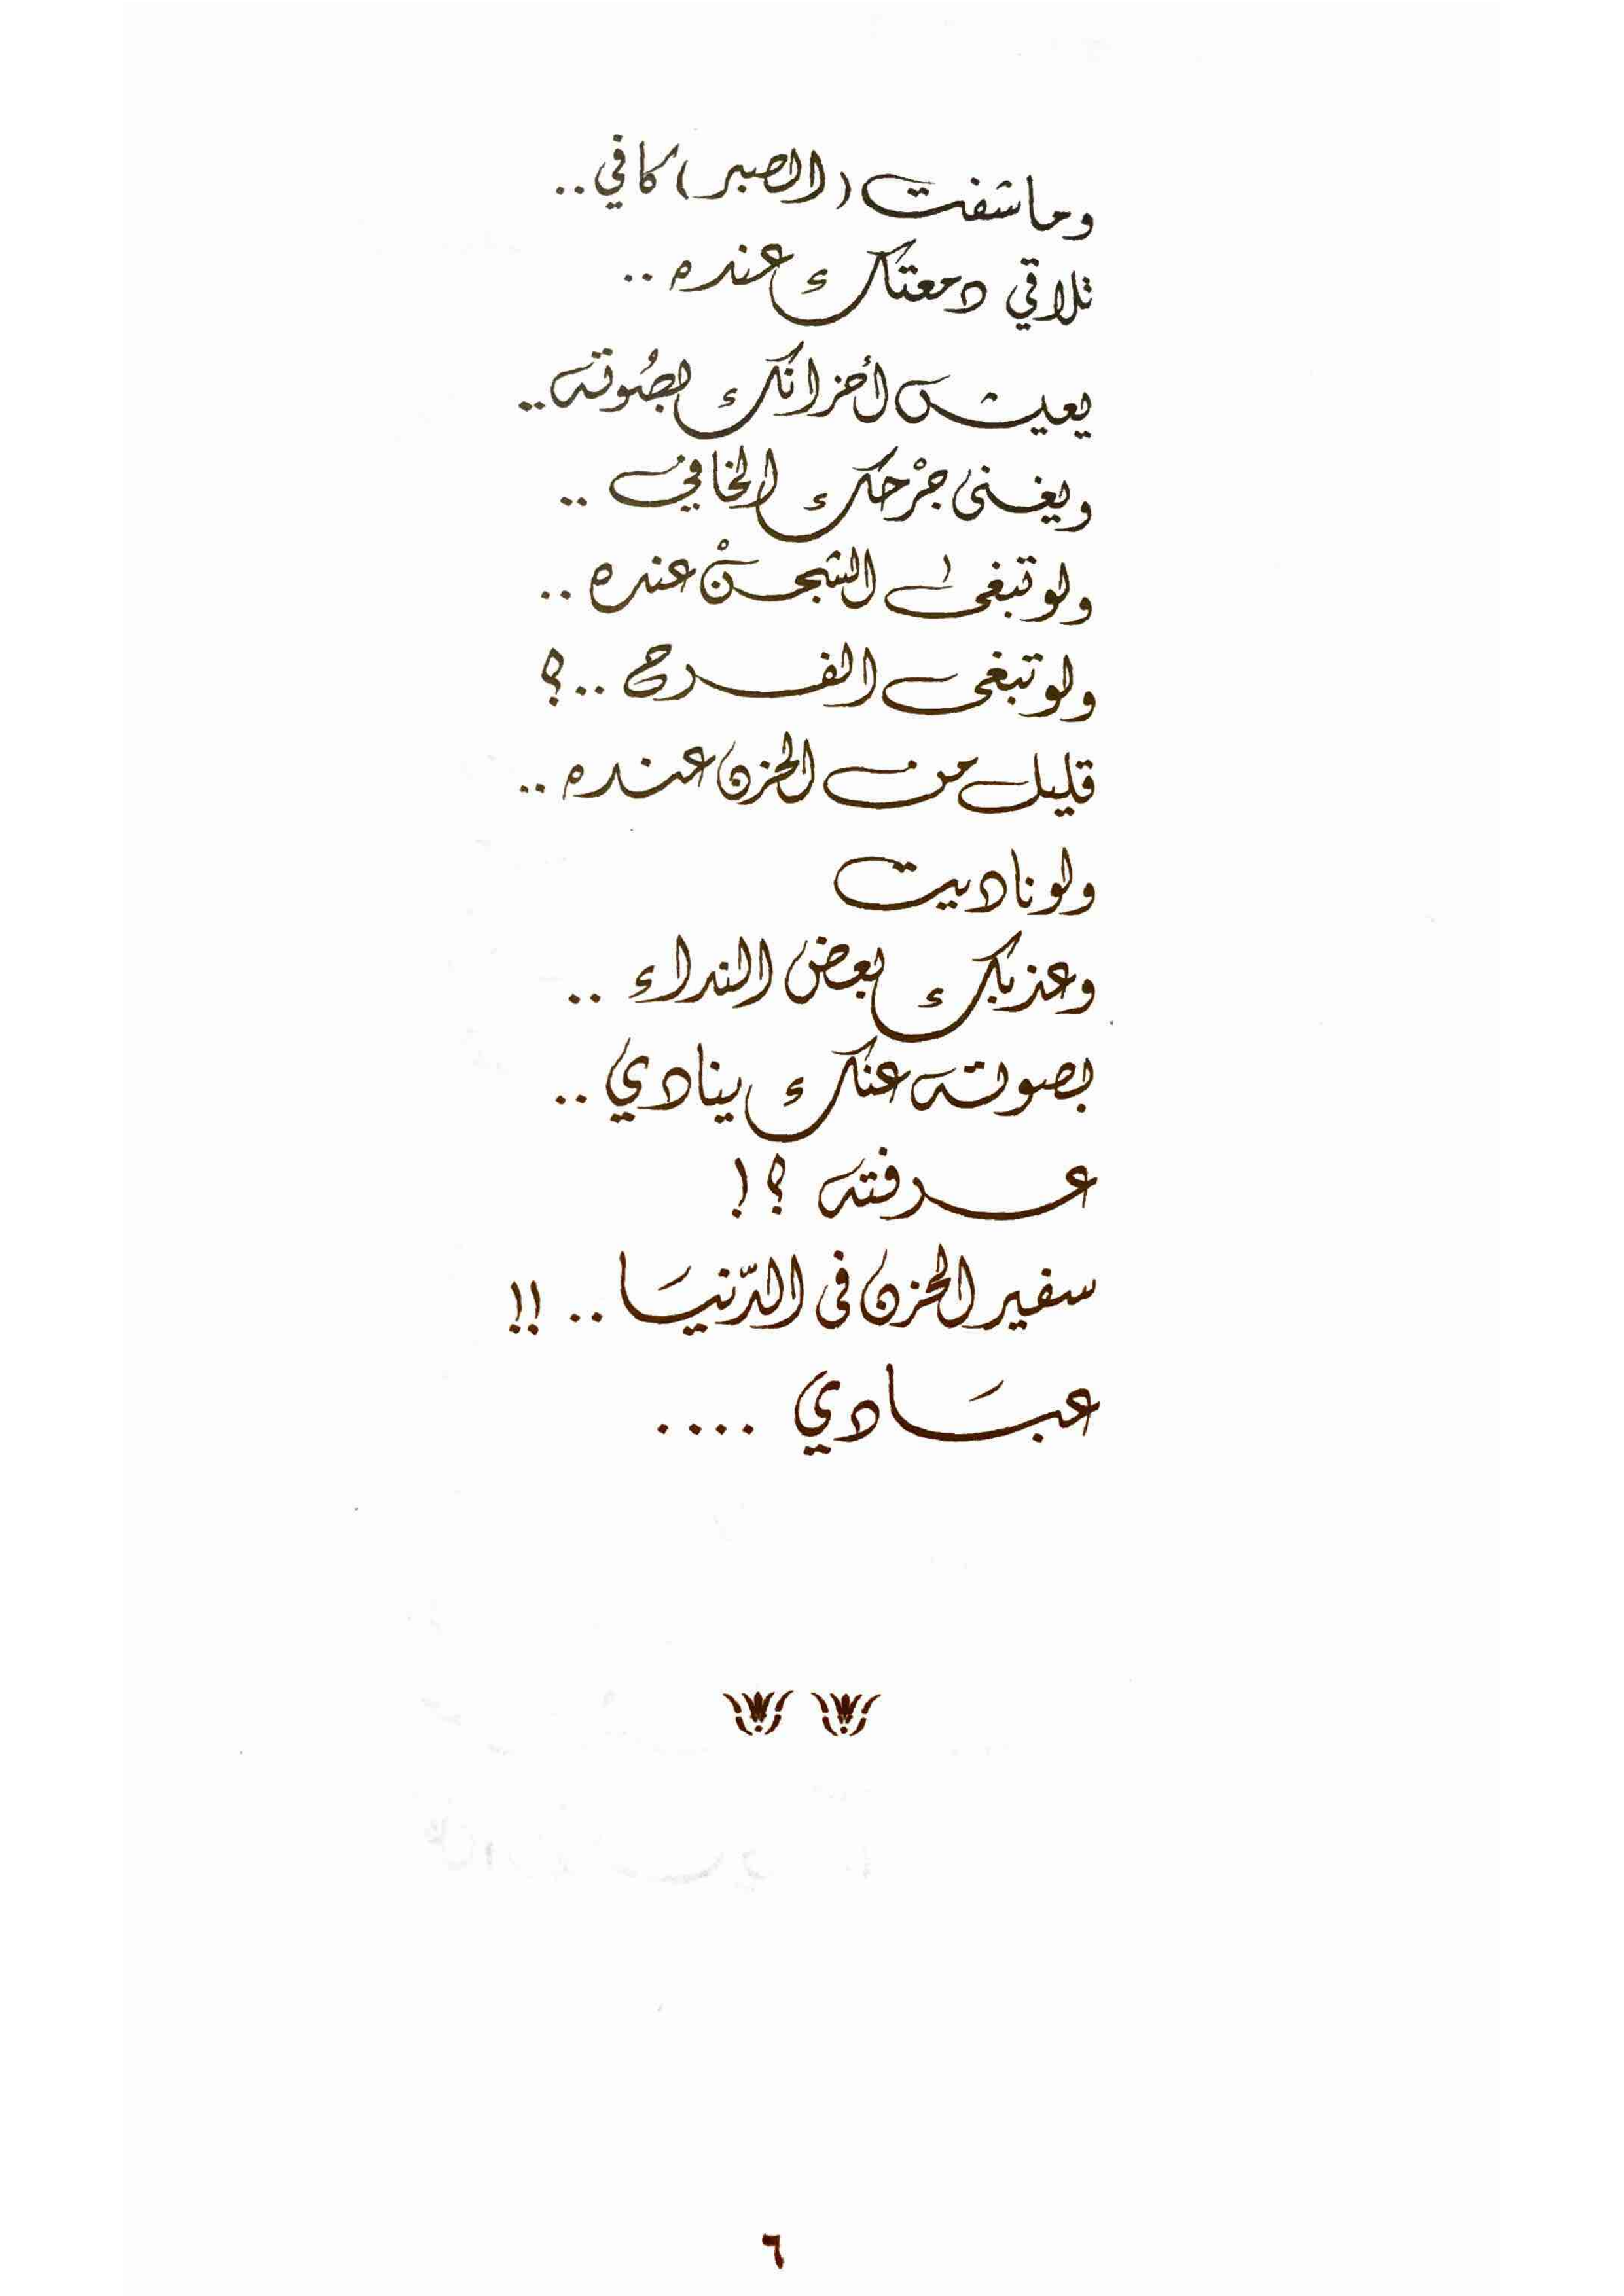 وما شفت (الصبر) كافي ..
تلاقي دمعتك عنده ..
يعيش أحزانك بصُوته ..
ويغنى جرْحك الخافي ..
ولو تبغى الشجنْ عنده ..
ولو تبغى الفرح ..؟
قليل من الحزن عنده ..
ولو ناديت
وعذبك بعض النداء ..
بصوته عنك ينادي ..
عرفته ؟!
سفير الحزن فى الدّنيَا .. !!
عبَادي ....
٦